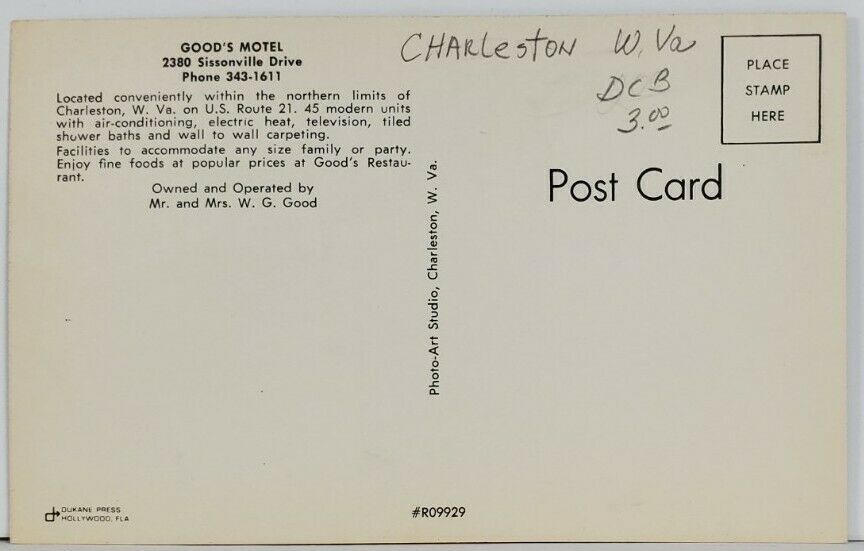 GOOD'S MOTEL
2380 Sissonville Drive
Phone 343-1611
Located conveniently within the northern limits of
Charleston, W. Va. on U.S. Route 21. 45 modern units
with air-conditioning, electric heat, television, tiled
shower baths and wall to wall carpeting.
Facilities to accommodate any size family or party.
Enjoy fine foods at popular prices at Good's Restau-
rant.
Owned and Operated by
Mr. and Mrs. W. G. Good
CHARleston W. Va
DCB
3.00
PLACE
STAMP
HERE
Post Card
Photo-Art Studio, Charleston, W. Va.
DUKANE PRESS
HOLLYWOOD, FLA
#R09929